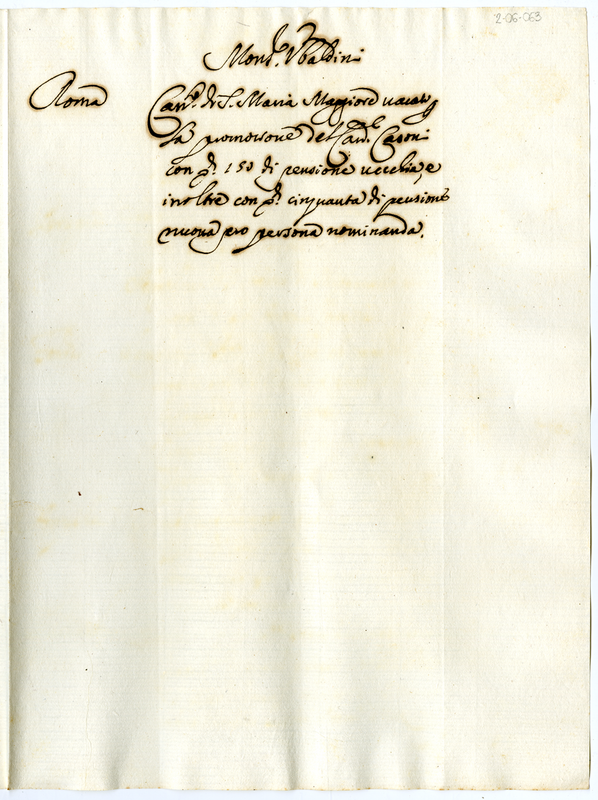 2-06-063
Mons.r Ubaldini
Roma
Can.to di S. Maria Maggiore vacato p
la promozione del Card.l Casoni
con p.di 150 di pensione vecchia, e
inoltre con p.di cinquanta di pensione
nuova pro persona nominanda.